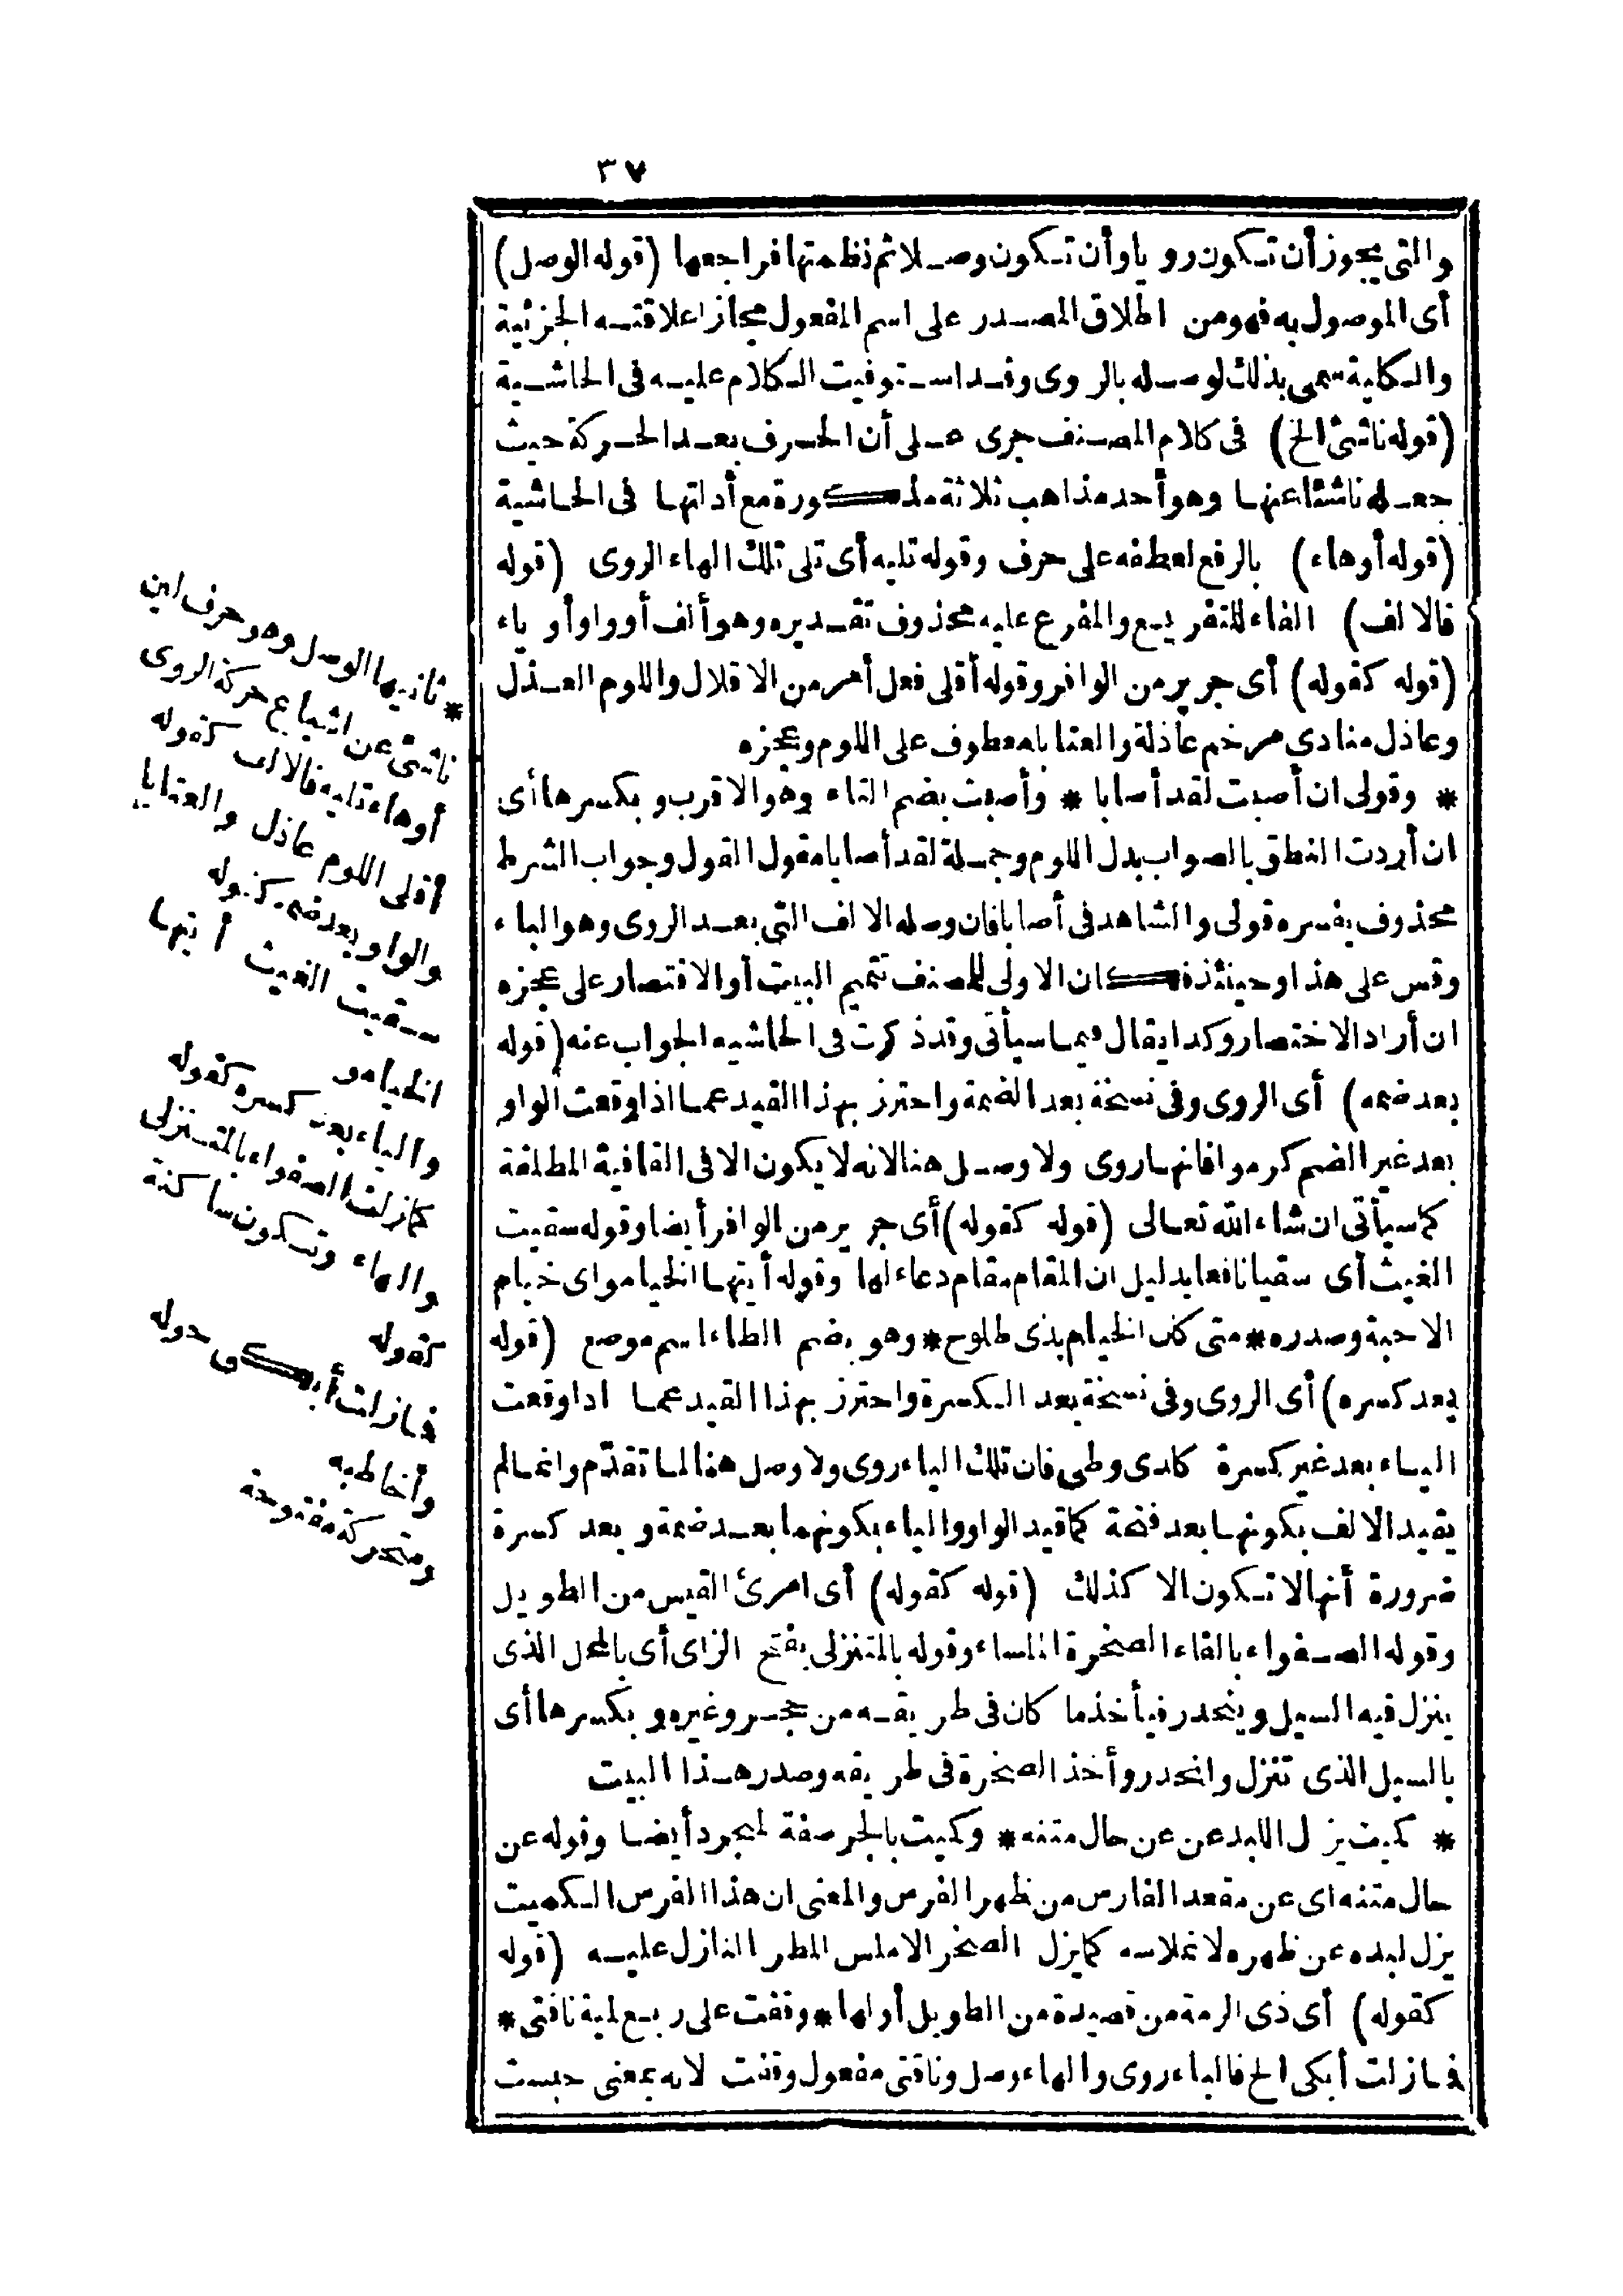 ٣٧
والتي يجوز أن تكون رويا وأن تكون وصلا ثم نظمتها فراجعها (قوله الوصل)
أى الموصول به فهو من اطلاق المصدر على اسم المفعول مجازا علاقته الجزئية
والكلية سمى بذلك لوصله بالروى وقد استوفيت الكلام عليه فى الحاشية
(قوله ناشئ الخ) فى كلام المصنف جرى على أن الحرف بعد الحركة حيث
جعله ناشئا عنها وهو أحد مذاهب ثلاثة مذكورة مع أدلتها فى الحاشية
(قوله أو هاء) بالرفع لعطفه على حرف وقوله تليه أى تلى تلك الهاء الروى (قوله
فالالف) الفاء للتفريع والمفرع عليه محذوف تقديره وهو ألف أو واو أو ياء
(قوله كقوله) أى جرير من الوافر وقوله أقلى فعل أمر من الاقلال واللوم العذل
وعاذل منادى مرخم عاذلة والعتابا معطوف على اللوم وعجزه
* وقولى ان أصبت لقد أصابا * وأصبت بضم التاء وهو الاقرب وبكسرها أى
ان أردت النطق بالصواب بدل اللوم وجملة لقد أصابا مقول القول وجواب الشرط
محذوف يفسره قولى والشاهد فى أصابا فان وصله الالف التى بعد الروى وهو الباء
وقس على هذا وحينئذ فكان الاولى للمصنف تتميم البيت أو الاقتصار على عجزه
ان أراد الاختصار وكذا يقال فيما سيأتى وقد ذكرت فى الحاشية الجواب عنه (قوله
بعد ضمه) أى الروى وفى نسخة بعد الضمة واحترز بهذا القيد عما اذا وقعت الواو
بعد غير الضم كرموا فانها روى ولا وصل هنا لانه لا يكون الا فى القافية المطلقة
كما سيأتى ان شاء الله تعالى (قوله كقوله) أى جرير من الوافر أيضا وقوله سقيت
الغيث أى سقيا نافعا بدليل ان المقام مقام دعاء لها وقوله أيتها الخيامو اى خيام
الاحبة وصدره * متى كان الخيام بذى طلوح * وهو بضم الطاء اسم موضع (قوله
بعد كسره) أى الروى وفى نسخة بعد الكسرة واحترز بهذا القيد عما اذا وقعت
الياء بعد غير كسرة كلدى وطى فان تلك الياء روى ولا وصل هنا لما تقدّم وانما لم
يقيد الالف بكونها بعد فتحة كما قيد الواو والياء بكونهما بعد ضمة وبعد كسرة
ضرورة أنها لا تكون الا كذلك (قوله كقوله) أى امرئ القيس من الطويل
وقوله الصفواء بالفاء الصخرة الملساء وقوله بالمتنزلى بفتح الزاى أى بالمحل الذى
ينزل فيه السيل وينحدر فيأخذ ما كان فى طريقه من حجر وغيره وبكسرها أى
بالسيل الذى تنزل وانحدر وأخذ الصخرة فى طريقه وصدر هذا البيت
* كميت يزل اللبد عن عن حال متنه * وكميت بالجر صفة لمنجرد أيضا وقوله عن
حال متنه اى عن مقعد الفارس من ظهر الفرس والمعنى ان هذا الفرس الكميت
يزل لبده عن ظهره لانملاسه كما يزل الصخر الاملس المطر النازل عليه (قوله
كقوله) أى ذى الرمة من قصيدة من الطويل أولها * وقفت على ربع لمية ناقتى *
فما زلت أبكى الخ فالباء روى والهاء وصل وناقتى مفعول وقفت لانه بمعنى حبست
* ثانيها الوصل وهو حرف لين
ناشئ عن اشباع حركة الروى
أو هاء تليه فالالف كقوله
أقلى اللوم عاذل والعتابا
والواو بعد ضمه كقوله
سقيت الغيث أيتها
الخيامو
والياء بعد كسره كقوله
كما زلت الصفواء بالمتنزلى
والهاء وتكون ساكنة
كقوله
فما زلت أبكى حوله
وأخاطبه
ومتحركة مفتوحة